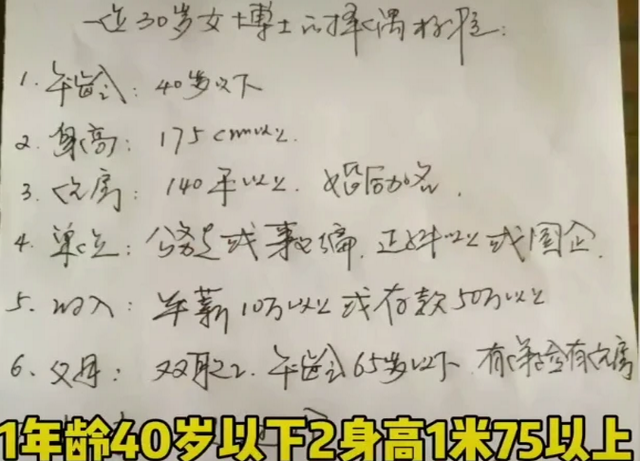 一位30岁女博士的择偶标准:
1. 年龄: 40岁以下
2. 身高: 175cm以上.
3. 住房: 140平以上. 婚后加名.
4. 单位: 公务员或事业编, 正科以上或国企.
5. 收入: 年薪10万以上或存款50万以上
6. 父母: 双职工. 年龄65岁以下. 有养老金有住房
1年龄40岁以下2身高1米75以上